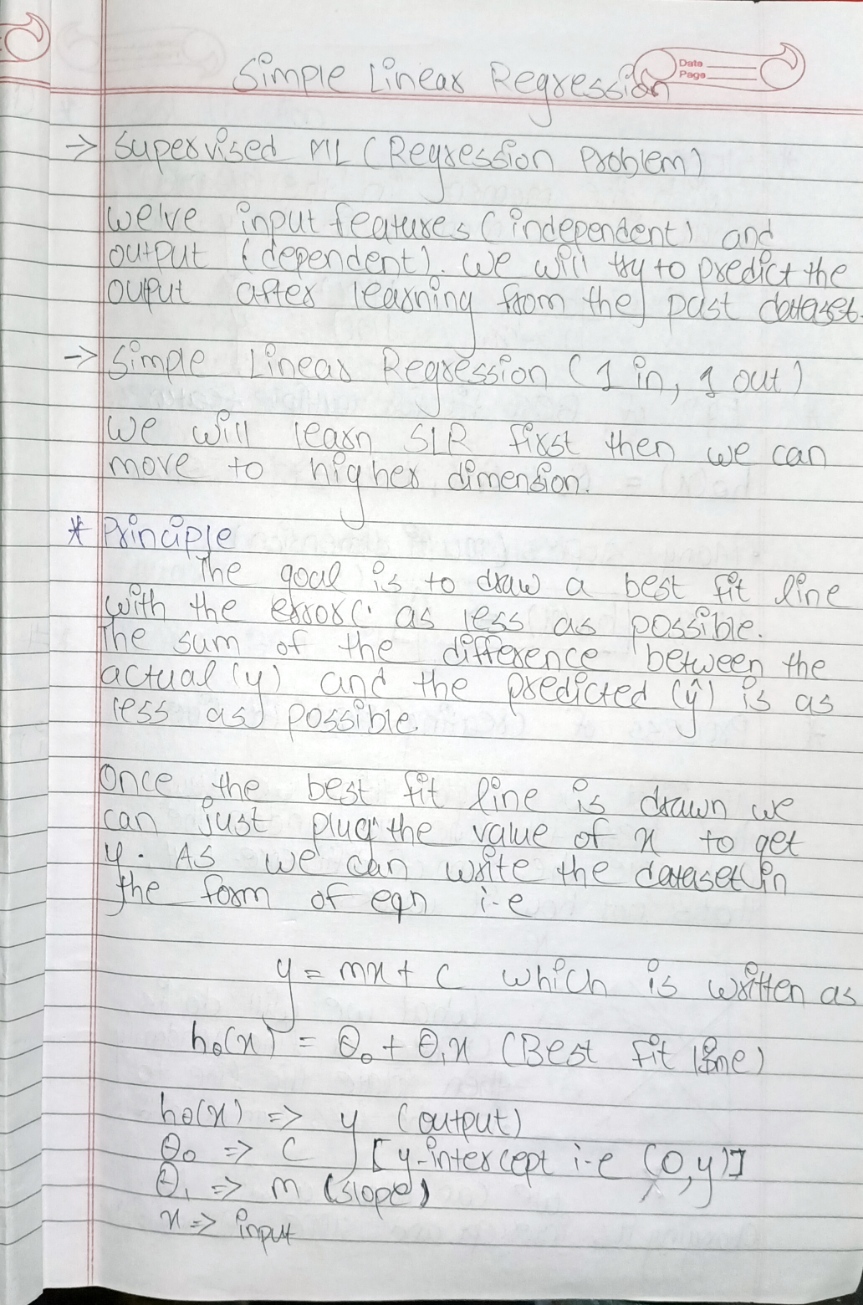 Simple Linear Regression
Date
Page
→ Supervised ML (Regression Problem)
we've input features (independent) and
output (dependent). We will try to predict the
ouput after learning from the past dataset.
→ Simple Linear Regression (1 in, 1 out)
We will learn SLR first then we can
move to higher dimension.
* Principle
The goal is to draw a best fit line
with the error as less as possible.
The sum of the difference between the
actual (y) and the predicted (ŷ) is as
less as possible.
Once the best fit line is drawn we
can just plug the value of x to get
y. As we can write the dataset in
the form of eqn i-e
y = mx + c which is written as
hθ(x) = θ₀ + θ₁x (Best fit line)
hθ(x) => y (output)
θ₀ => c [y-intercept i-e (0,y)]
θ₁ => m (slope)
x => input